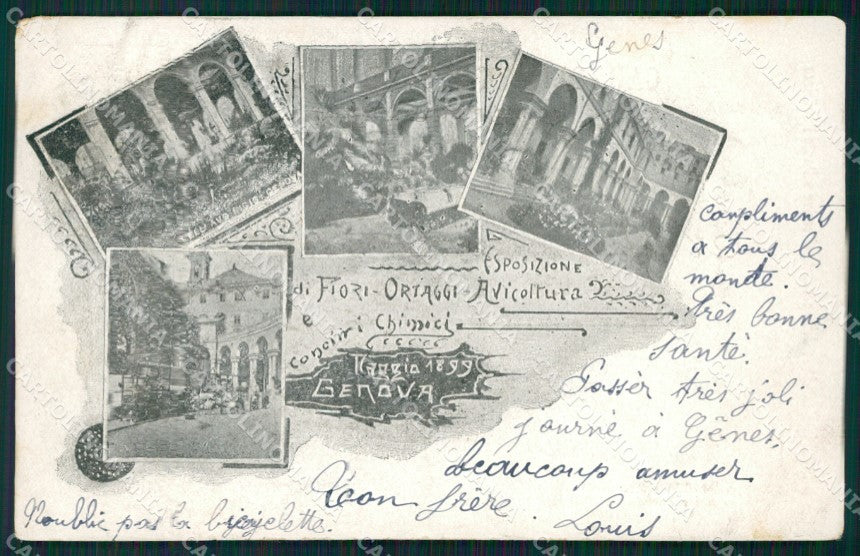 Genes
ESPOSIZIONE
di FIORI-ORTAGGI-AVicoltura
e
concimi Chimici
Maggio 1899
GENOVA
compliments
a tous le
monde.
très bonne
santé.
Passèr très joli
journé à Gênes,
beaucoup amuser
frère.
Louis
N'oublie pas la bicyclette.
CARTOLINOMANIA